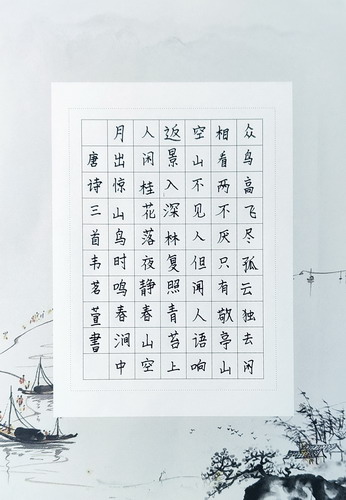 众鸟高飞尽孤云独去闲
相看两不厌只有敬亭山
空山不见人但闻人语响
返景入深林复照青苔上
人闲桂花落夜静春山空
月出惊山鸟时鸣春涧中
唐诗三首韦茗萱書